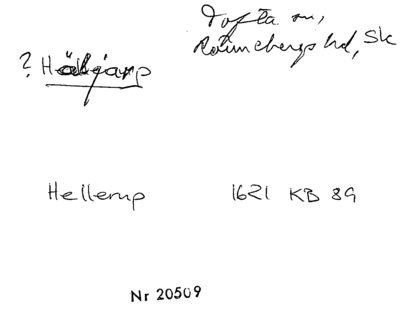 Tofta sn,
? Häljarp Rönnebergs hd, Sk
Hellerup 1621 KB 89
Nr 20509